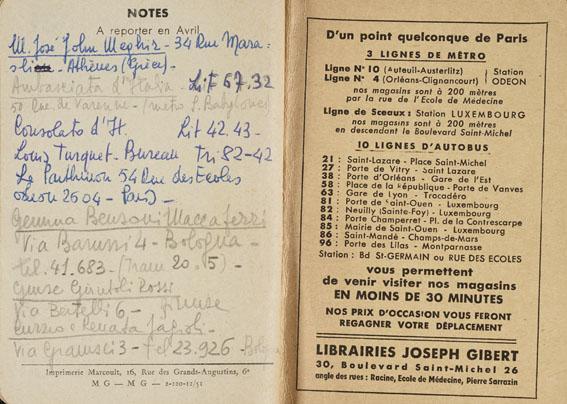 NOTES
A reporter en Avril
M. José John Meghir - 34 Rue Mara=
- Athènes (Grèce) -
Ambasciata d'Italia - Lit 57.32
50 Rue de Varenne - (metro S. Babylone)
Consolato d'It. Lit 42.43 -
Louis Turquet - Bureau Tri 82-42
Le Panthinon 54 Rue des Ecoles
Odeon 2604 - Paris -
Gemma Bensoni Maccaferri
Via Baruzzi 4 - Bologna -
tel. 41.683 - (Tram 20.15) -
Giuntoli Rossi
Via Bertelli 6 -
e Renata
Via Gramsci 3 - tel 23.926 - Bologna
Imprimerie Marcoult, 16, Rue des Grands-Augustins, 6e
MG — MG — 2-200-12/51
D'un point quelconque de Paris
3 LIGNES DE MÉTRO
Ligne N° 10 (Auteuil-Austerlitz) Station
Ligne N° 4 (Orléans-Clignancourt) ODEON
nos magasins sont à 200 mètres
par la rue de l'Ecole de Médecine
Ligne de Sceaux : Station LUXEMBOURG
nos magasins sont à 200 mètres
en descendant le Boulevard Saint-Michel
10 LIGNES D'AUTOBUS
21 : Saint-Lazare - Place Saint-Michel
27 : Porte de Vitry - Saint Lazare
38 : Porte d'Orléans - Gare de l'Est
58 : Place de la République - Porte de Vanves
63 : Gare de Lyon - Trocadéro
81 : Porte de Saint-Ouen - Luxembourg
82 : Neuilly (Sainte-Foy) - Luxembourg
84 : Porte Champerret - Pl. de la Contrescarpe
85 : Mairie de Saint-Ouen - Luxembourg
86 : Saint-Mandé - Champs-de-Mars
96 : Porte des Lilas - Montparnasse
Station : Bd St-GERMAIN ou RUE DES ECOLES
vous permettent
de venir visiter nos magasins
EN MOINS DE 30 MINUTES
NOS PRIX D'OCCASION VOUS FERONT
REGAGNER VOTRE DÉPLACEMENT
LIBRAIRIES JOSEPH GIBERT
30, BOULEVARD SAINT-MICHEL 26
angle des rues : Racine, Ecole de Médecine, Pierre Sarrazin